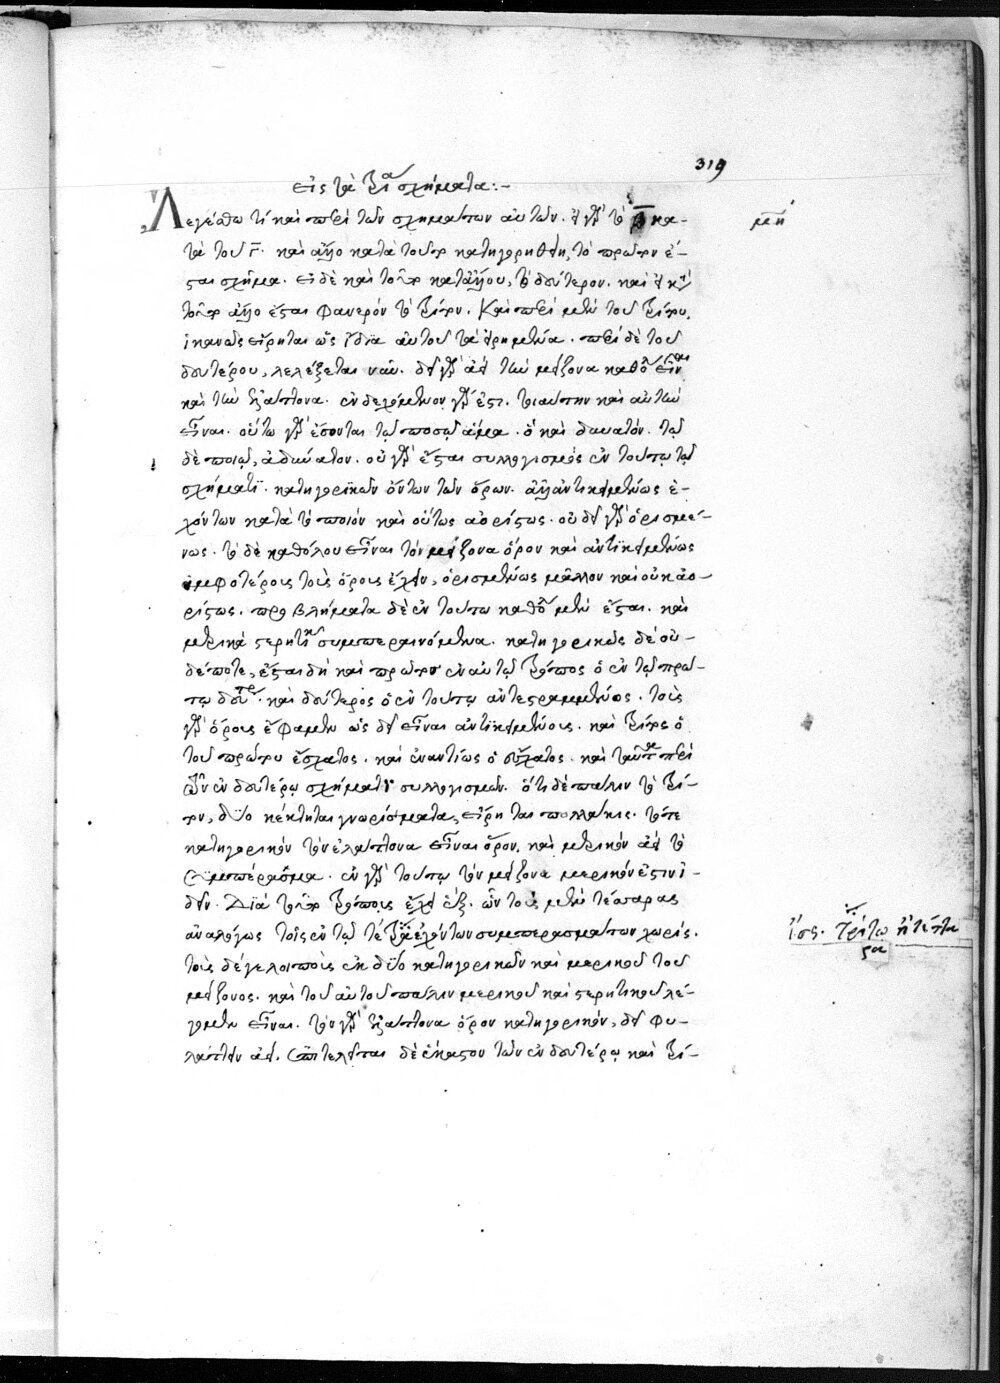 319
Εἰς τὰ τρία σχήματα :-
Λεγέσθω τί καὶ περὶ τῶν σχημάτων αὐτῶν. εἰ γὰρ τὸ κα-
τὰ τοῦ γ̄. καὶ ἄλλο κατὰ τούτου κατηγορηθείη, τὸ πρῶτον ἔ-
σται σχῆμα. εἰ δὲ καὶ τοῦτο κατ' ἄλλου, τὸ δεύτερον. καὶ εἰ κατὰ
τούτου ἄλλο ἔσται φανερὸν τὸ τρίτον. Καὶ περὶ μὲν τοῦ τρίτου,
ἱκανῶς εἴρηται ὡς ἴδια αὐτοῦ τὰ εἰρημένα. περὶ δὲ τοῦ
δευτέρου, λελέξεται νῦν. δεῖ γὰρ ἀεὶ τὴν μείζονα καθόλου εἶναι
καὶ τὴν ἐλάττονα. ἐνδεχόμενον γάρ ἐστι. τοιαύτην καὶ αὐτὴν
εἶναι. οὕτω γὰρ ἔσονται τῷ ποσῷ ἅμα. ὃ καὶ δυνατόν. τῷ
δὲ ποιῷ, ἀδύνατον. οὐ γὰρ ἔσται συλλογισμὸς ἐν τούτῳ τῷ
σχήματι. κατηγορικῶν ὄντων τῶν ὅρων. ἀλλ' ἀντικειμένως ἐ-
χόντων κατὰ τὸ ποιὸν καὶ οὕτως ἀορίστως. οὐ δεῖ γὰρ ὁρισμέ-
νως. τὸ δὲ καθόλου εἶναι τὸν μείζονα ὅρον καὶ ἀντικειμένως
ἀμφοτέροις τοῖς ὅροις ἔχειν, ὁρισμένως μᾶλλον καὶ οὐκ ἀο-
ρίστως. προβλήματα δὲ ἐν τούτῳ καθόλου μὲν ἔσται. καὶ
μερικὰ στερητικὰ συμπεραινόμενα. κατηγορικῶς δὲ οὐ-
δέποτε, ἔσται δὴ καὶ πρῶτος ἐν αὐτῷ τρόπος ὁ ἐν τῷ πρώ-
τῳ δεύτερος. καὶ δεύτερος ὁ ἐν τούτῳ ἀντεστραμμένως. τοὺς
γὰρ ὅρους ἔφαμεν ὡς δεῖ εἶναι ἀντικειμένους. καὶ τρίτος ὁ
τοῦ πρώτου ἔσχατος. καὶ ἐναντίως ὁ ἔσχατος. καὶ ταῦτα περὶ
τῶν ἐν δευτέρῳ σχήματι συλλογισμῶν. ὅτι δὲ πάλιν τὸ τρί-
τον, δύο κέκτηται γνωρίσματα, εἴρηται πολλάκις. τό τε
κατηγορικὸν τὸν ἐλάττονα εἶναι ὅρον, καὶ μερικὸν ἀεὶ τὸ
συμπέρασμα. ἐν γὰρ τούτῳ τὸν μείζονα μερικὸν ἔστιν ἰ-
δεῖν. Διὰ τοῦτο τρόπους ἔχει ἕξ. ὧν τοὺς μὲν τέσσαρας
ἀναλόγως τοῖς ἐν τῷ τέταρτα ἐχόντων συμπερασμάτων χωρίς.
τοὺς δέ γε λοιποὺς ἐκ δύο κατηγορικῶν καὶ μερικοῦ τοῦ
μείζονος. καὶ τοῦ αὐτοῦ πάλιν μερικοῦ καὶ στερητικοῦ λέ-
γομεν εἶναι. τὸν γὰρ ἐλάττονα ὅρον κατηγορικόν, δεῖ φυ-
λάττειν ἀεί. Ἐπιτελεῖται δὲ ἕκαστον τῶν ἐν δευτέρῳ καὶ τρί-
μη
ἴσ. τρίτω ἢ τέττα
ρα